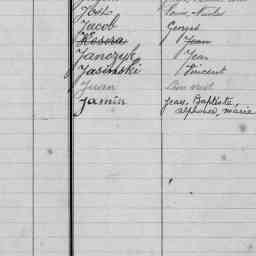 Jost
Jacob Georges
Kosora Jean
Janczyk Jean
Jasinski Vincent
Juan
Jamin Jean, Baptiste,
alphonse, marie